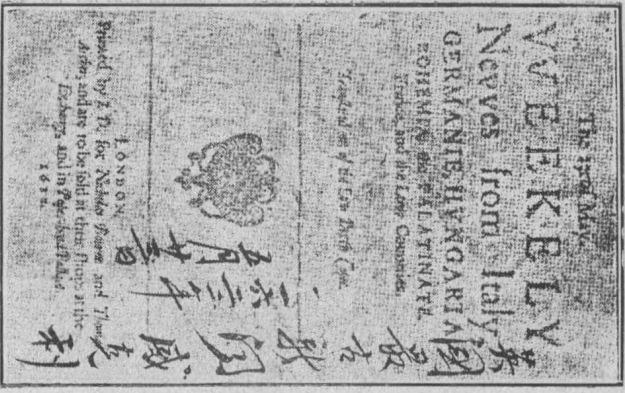 The 23. of May.
VVEEKELY
Nevves from Italy,
GERMANIE, HVNGARIA,
BOHEMIA, the PALATINATE,
France, and the Low Countries.
Translated out of the Low Dutch Copie.
LONDON,
Printed by I. D. for Nicholas Bourne and Thomas
Archer, and are to be sold at their shops at the
Exchange, and in Popes-head Pallace.
1622.
英國最古新聞威克利
一六二二年
五月廿三日